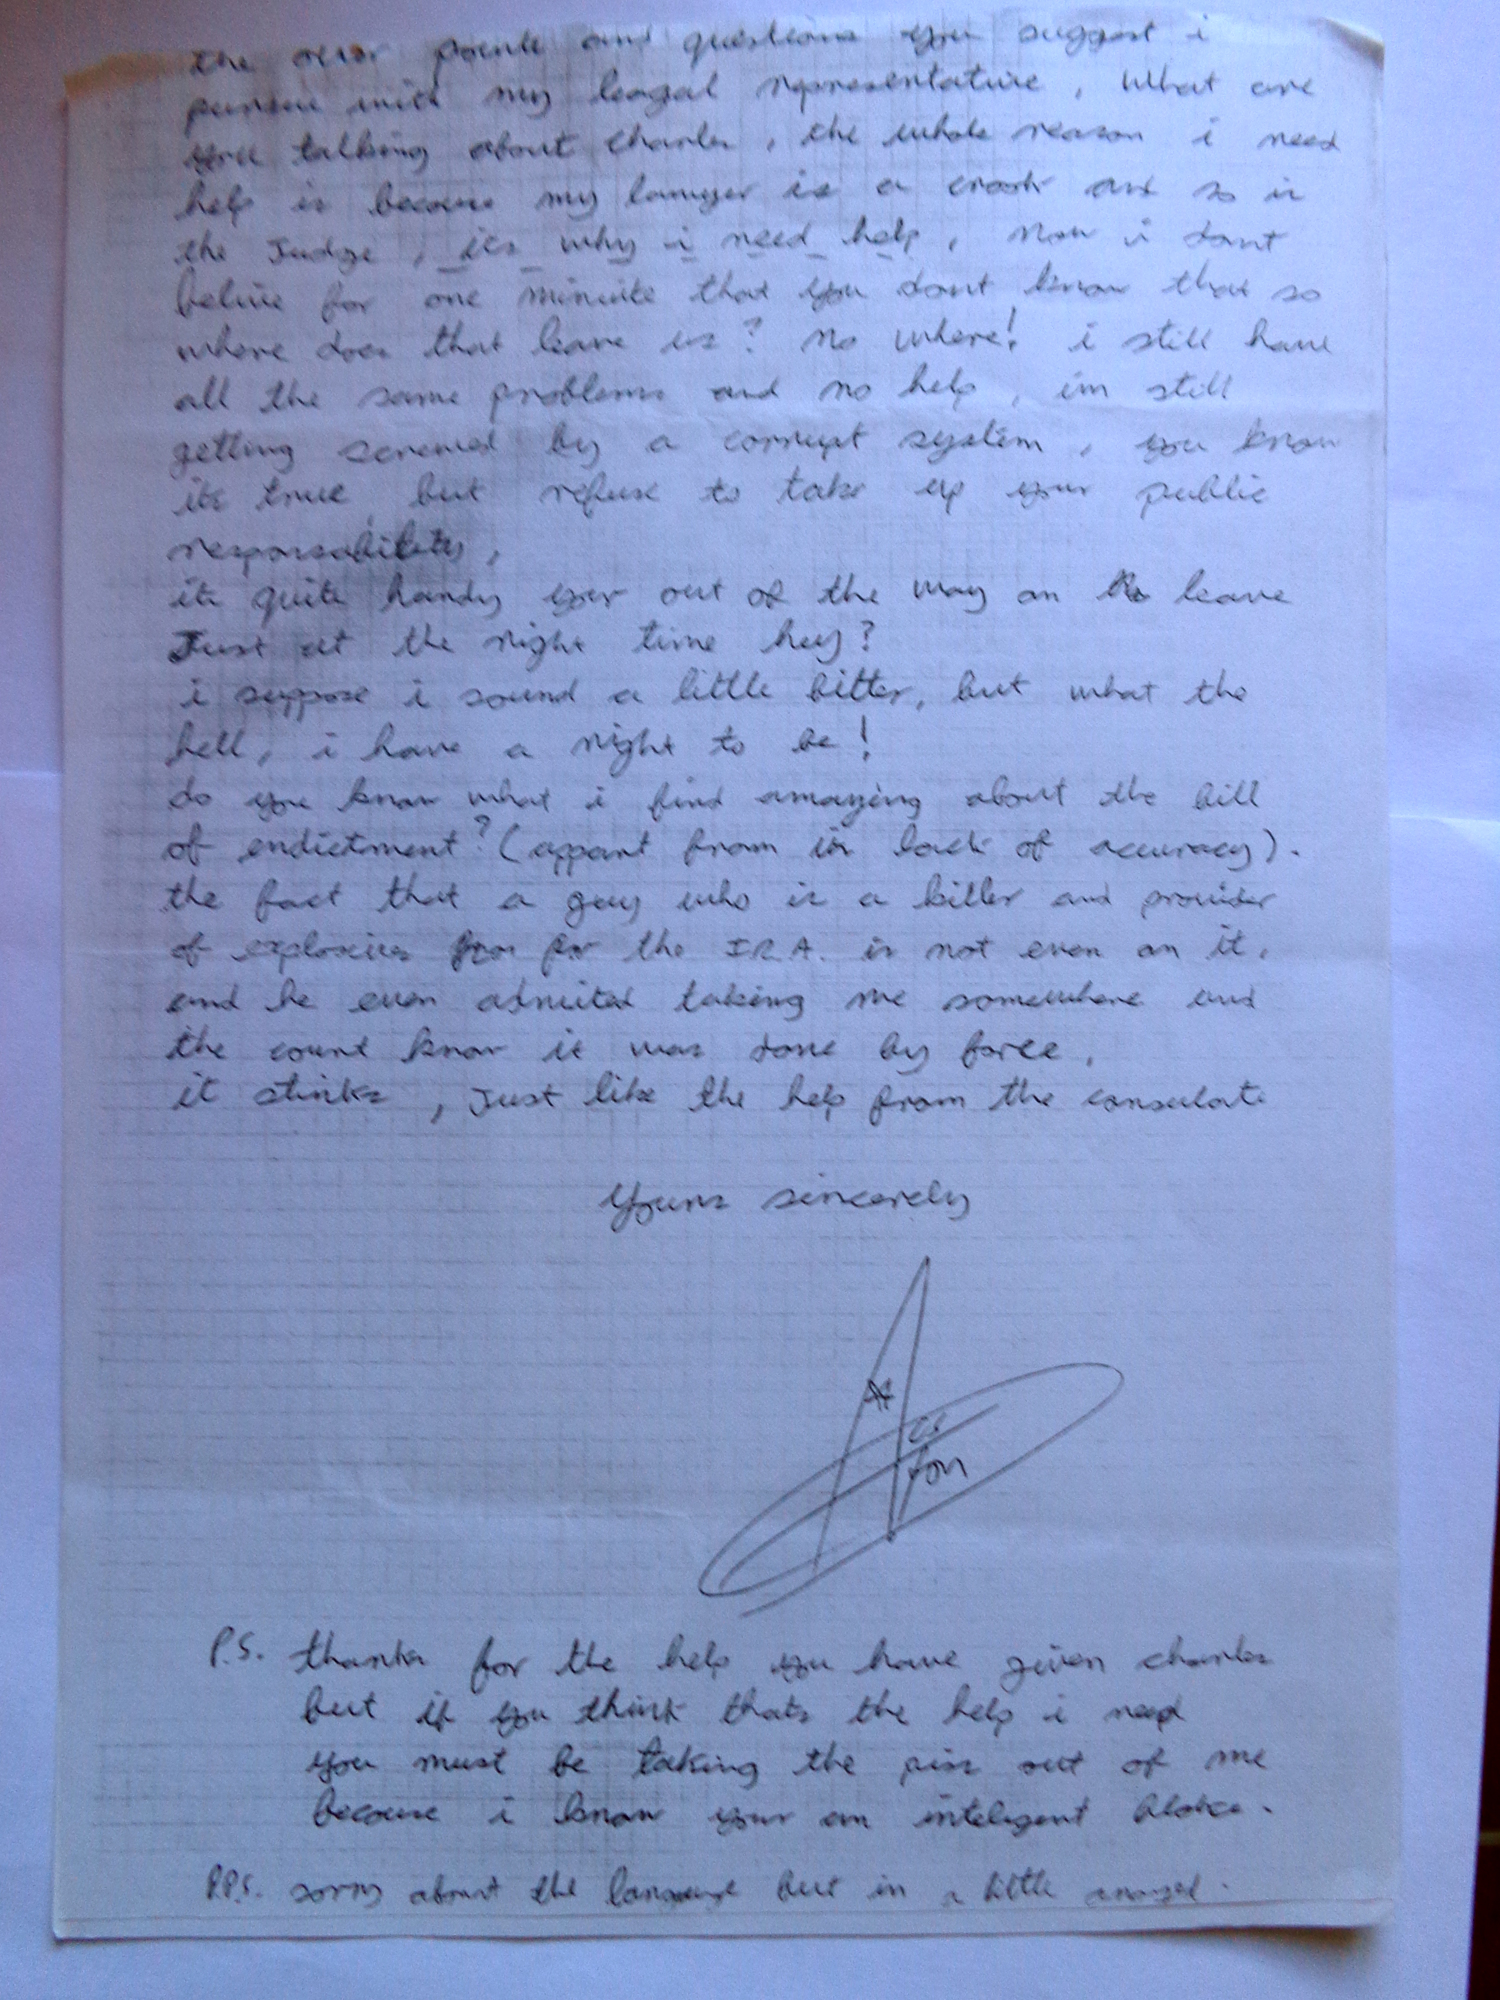 the other points and questions you suggest i
pursue with my leagal representative, what are
you talking about charles, the whole reason i need
help is because my lawyer is a crook and so is
the Judge, its why i need help, now i dont
belive for one minute that you dont know that so
where does that leave us? no where! i still have
all the same problems and no help, im still
getting screwed by a corrupt system, you know
its true but refuse to take up your public
responsability,
its quite handy your out of the way on leave
Just at the right time hey?
i suppose i sound a little bitter, but what the
hell, i have a right to be!
do you know what i find amazing about the bill
of endictment? (appart from its lack of accuracy).
the fact that a guy who is a killer and provider
of explosives for the I.R.A. is not even on it,
and he even admited taking me somewhere and
the court know it was done by force,
it stinks, Just like the help from the consulate
Yours sincerely
P.S. thanks for the help you have given charles
but if you think thats the help i need
you must be taking the piss out of me
because i know your an inteligent bloke.
P.P.S. sorry about the language but im a little